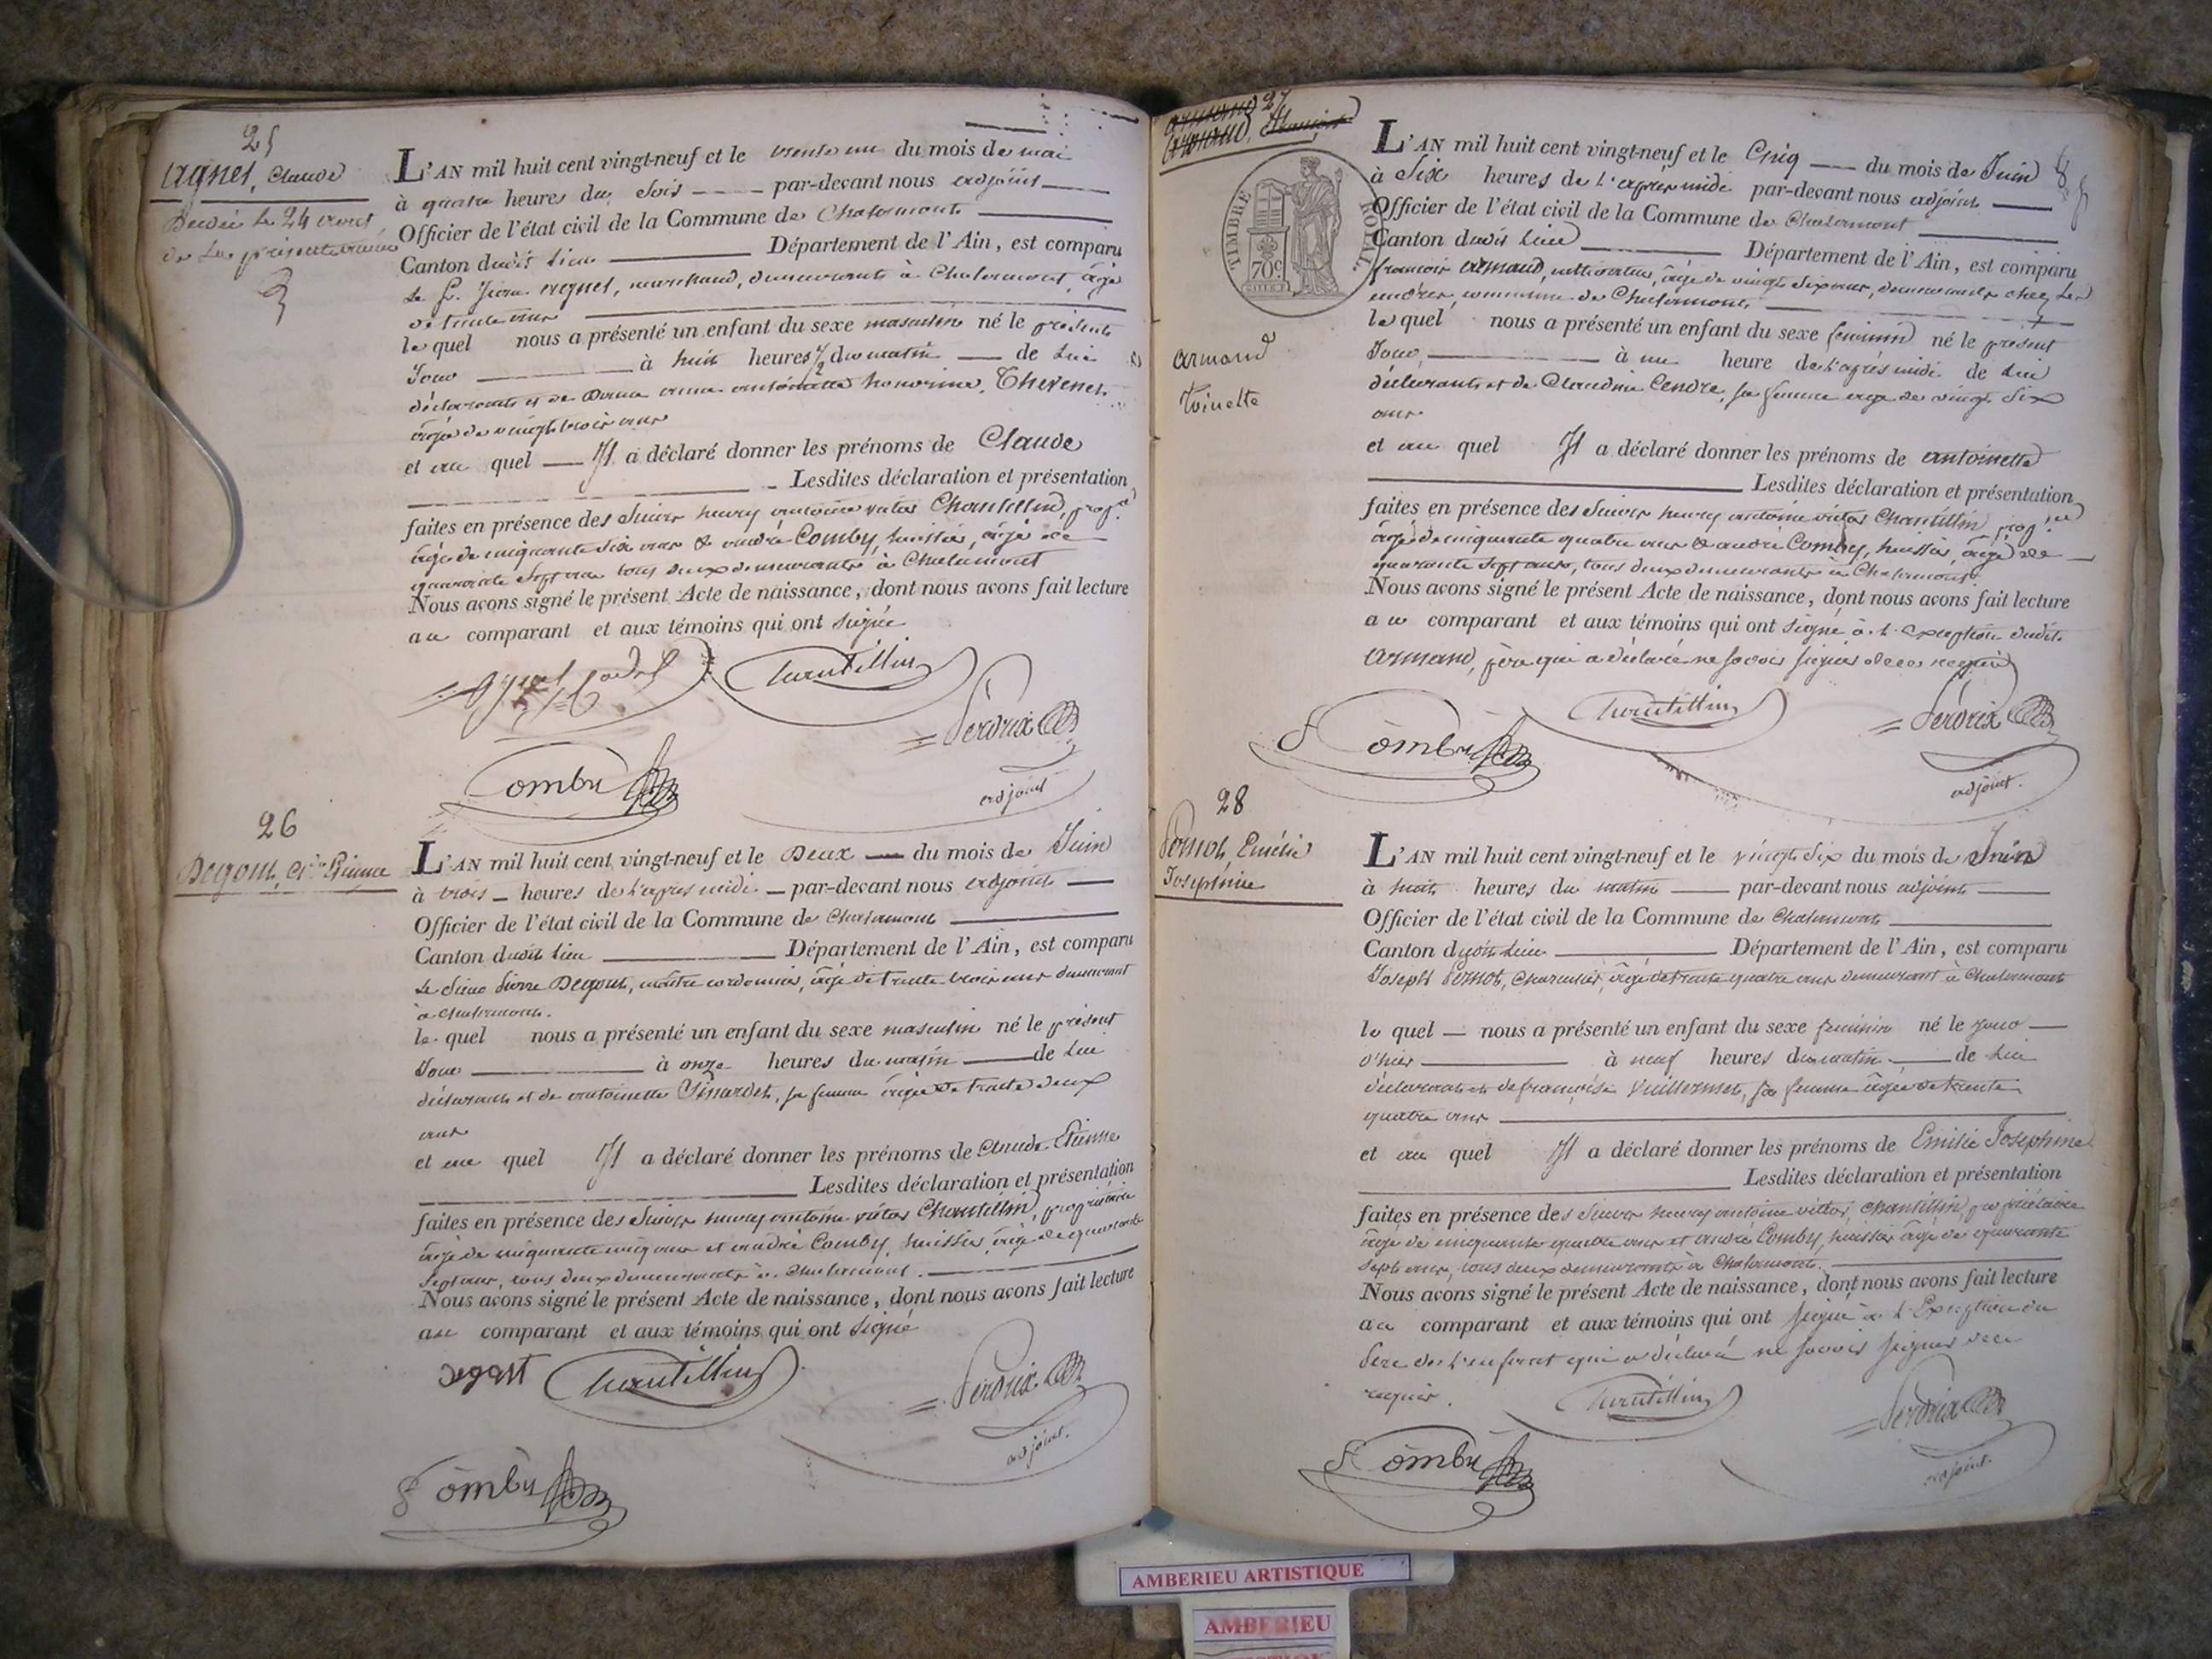 25
Agnel, Claude
Décédé le 24 avril
de la présente année
L'AN mil huit cent vingt-neuf et le trente un du mois de mai
à quatre heures du Soir par-devant nous adjoint
Officier de l'état civil de la Commune de Chalamont
Canton dudit lieu Département de l'Ain, est comparu
le Sr. agnel, marchand, demeurant à Chalamont, âgé
de trente ans
le quel nous a présenté un enfant du sexe masculin né le présent
Jour à huit heures 1/2 du matin de lui
déclarant et de Dame anne antoinette honorine, Thevenet
âgée de vingt trois ans
et au quel Il a déclaré donner les prénoms de Claude
Lesdites déclaration et présentation
faites en présence des Sieurs henry antoine victor Chantillin, propre
âgé de cinquante six ans & andré Comby, huissier, âgé de
quarante Sept ans tous deux demeurants à Chalamont
Nous avons signé le présent Acte de naissance, dont nous avons fait lecture
au comparant et aux témoins qui ont Signé
Agnel Chantillin
Perdrix
Comby
adjoint
26
Degout, Cde Etienne
L'AN mil huit cent vingt-neuf et le Deux du mois de Juin
à trois heures de l'après midi par-devant nous adjoint
Officier de l'état civil de la Commune de Chalamont
Canton dudit lieu Département de l'Ain, est comparu
Le Sieur Pierre Degout, maître cordonnier, âgé de trente trois ans demeurant
à Chalamont.
le quel nous a présenté un enfant du sexe masculin né le présent
Jour à onze heures du matin de lui
déclarant et de antoinette, sa femme âgée de trente deux
ans
et au quel Il a déclaré donner les prénoms de Claude Etienne
Lesdites déclaration et présentation
faites en présence des Sieurs henry antoine victor Chantillin, propriétaire
âgé de cinquante cinq ans et andré Comby, huissier, âgé de quarante
Sept ans, tous deux demeurants à Chalamont.
Nous avons signé le présent Acte de naissance, dont nous avons fait lecture
au comparant et aux témoins qui ont Signé
Degout Chantillin
Perdrix
adjoint.
Comby
27
armand
Toinette
TIMBRE ROYAL
70c
L'AN mil huit cent vingt-neuf et le Cinq du mois de Juin
à Six heures de l'après midi par-devant nous adjoint
Officier de l'état civil de la Commune de Chalamont
Canton dudit lieu Département de l'Ain, est comparu
françois armand, cultivateur, âgé de vingt Six ans, demeurant chez les
commune de Chalamont,
le quel nous a présenté un enfant du sexe féminin né le présent
Jour à une heure de l'après midi de lui
déclarant et de Claudine Cendre, sa femme âgée de vingt Six
ans
et au quel Il a déclaré donner les prénoms de antoinette
Lesdites déclaration et présentation
faites en présence des Sieurs henry antoine victor Chantillin, propre
âgé de cinquante quatre ans & andré Comby, huissier, âgé de
quarante Sept ans, tous deux demeurants à Chalamont.
Nous avons signé le présent Acte de naissance, dont nous avons fait lecture
au comparant et aux témoins qui ont Signé à l'exception dudit
armand, père qui a déclaré ne savoir signer de ce requis
Chantillin
Perdrix
Comby
adjoint.
28
Pernot, Emélie
Josephine
L'AN mil huit cent vingt-neuf et le vingt Six du mois de Juin
à huit heures du matin par-devant nous adjoint
Officier de l'état civil de la Commune de Chalamont
Canton dudit lieu Département de l'Ain, est comparu
Joseph Pernot, Charcutier, âgé de trente quatre ans demeurant à Chalamont
le quel nous a présenté un enfant du sexe féminin né le jour
d'hier à neuf heures du matin de lui
déclarant et de françoise Vuillermet, sa femme âgée de trente
quatre ans
et au quel Il a déclaré donner les prénoms de Emélie Josephine
Lesdites déclaration et présentation
faites en présence des Sieurs henry antoine victor, Chantillin, propriétaire
âgé de cinquante quatre ans et andré Comby, huissier âgé de quarante
Sept ans, tous deux demeurants à Chalamont.
Nous avons signé le présent Acte de naissance, dont nous avons fait lecture
au comparant et aux témoins qui ont Signé à l'Exception du
Père de l'enfant qui a déclaré ne savoir signer de ce
requis.
Chantillin
Perdrix
Comby
adjoint.
AMBERIEU ARTISTIQUE
AMBERIEU